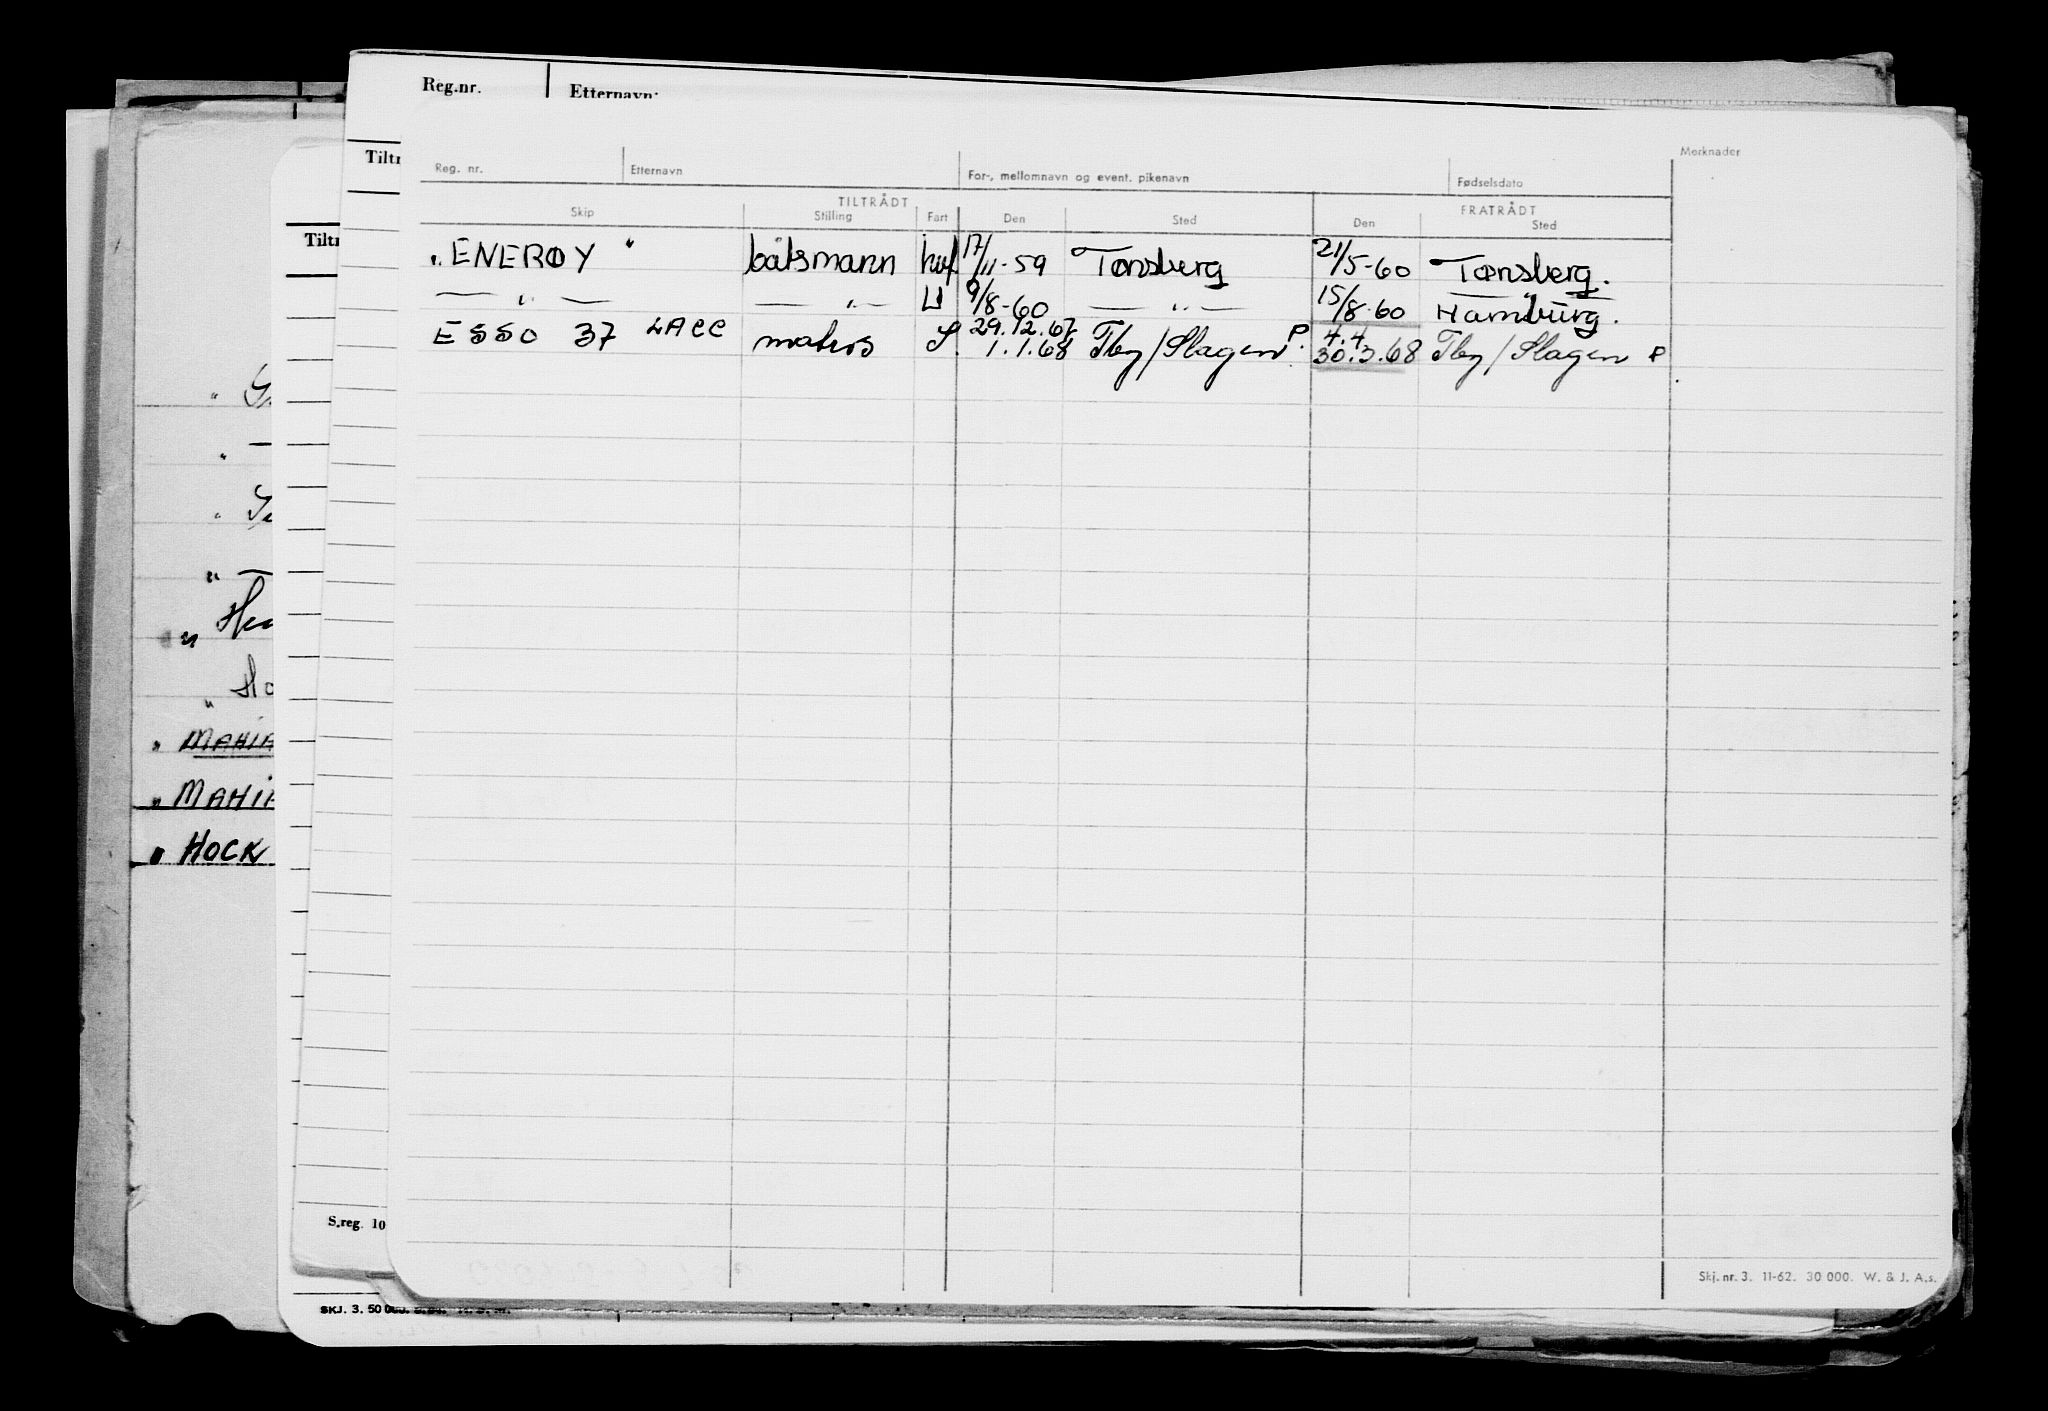 Reg.nr. Etternavn:
Tiltr
Tiltr
Reg. nr. Etternavn For-, mellomnavn og event. pikenavn Fødselsdato Merknader
TILTRÅDT FRATRÅDT
Skip Stilling Fart Den Sted Den Sted
„ENERØY" båtsmann 17/11-59 Tønsberg 21/5-60 Tønsberg.
— " — — " — U 9/8-60 — " — 15/8-60 Hamburg.
ESSO 37 LACC matros S. 29.12.67 1.1.68 Tbg/Slagen P. 4.4 30.3.68 Tbg/Slagen P
" MAHIA
" MAHIA
" HOCK
S.reg. 10
Skj. nr. 3. 11-62. 30 000. W. & J. A.s.
SKJ. 3. 50 000.